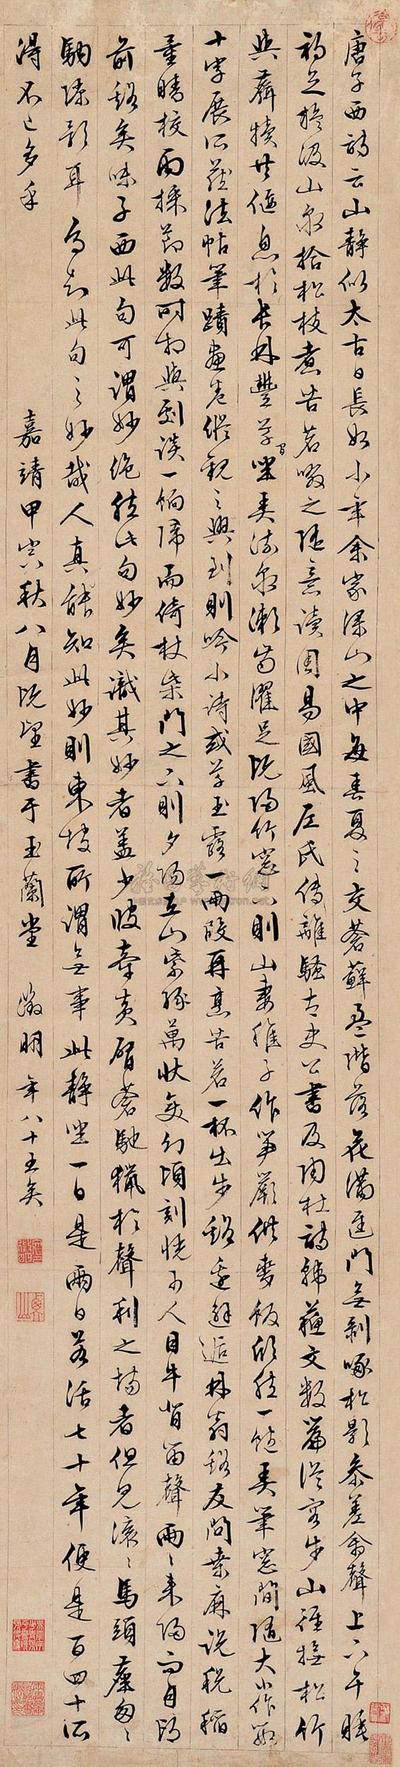 唐子西詩云山靜似太古日長如小年余家深山之中每春夏之交蒼蘚盈階落花滿庭門無剝啄松影參差禽聲上下午睡
初足旋汲山泉拾松枝煮苦茗啜之隨意讀周易國風左氏傳離騷太史公書及陶杜詩韓蘇文數篇從容步山徑撫松竹
與麛犢共偃息於長林豐草間坐弄流泉漱齒濯足既歸竹窗下則山妻稚子作筍蕨供麥飯欣然一飽弄筆窗間隨大小作數
十字展所藏法帖筆蹟畫卷縱觀之興到則吟小詩或草玉露一兩段再烹苦茗一杯出步溪邊邂逅林翁谿友問桑麻說秔稻
量晴校雨探節數時相與劇談一餉歸而倚杖柴門之下則夕陽在山紫綠萬狀變幻頃刻恍可人目牛背笛聲兩兩來歸而月印
前谿矣味子西此句可謂妙絕然此句妙矣識其妙者蓋少彼牽黃臂蒼馳獵於聲利之場者但見滾滾馬頭塵匆匆
駒隙影耳烏知此句之妙哉人真能知此妙則東坡所謂無事此靜坐一日是兩日若活七十年便是百四十所
得不已多乎
嘉靖甲寅秋八月既望書于玉蘭堂 徵明年八十五矣